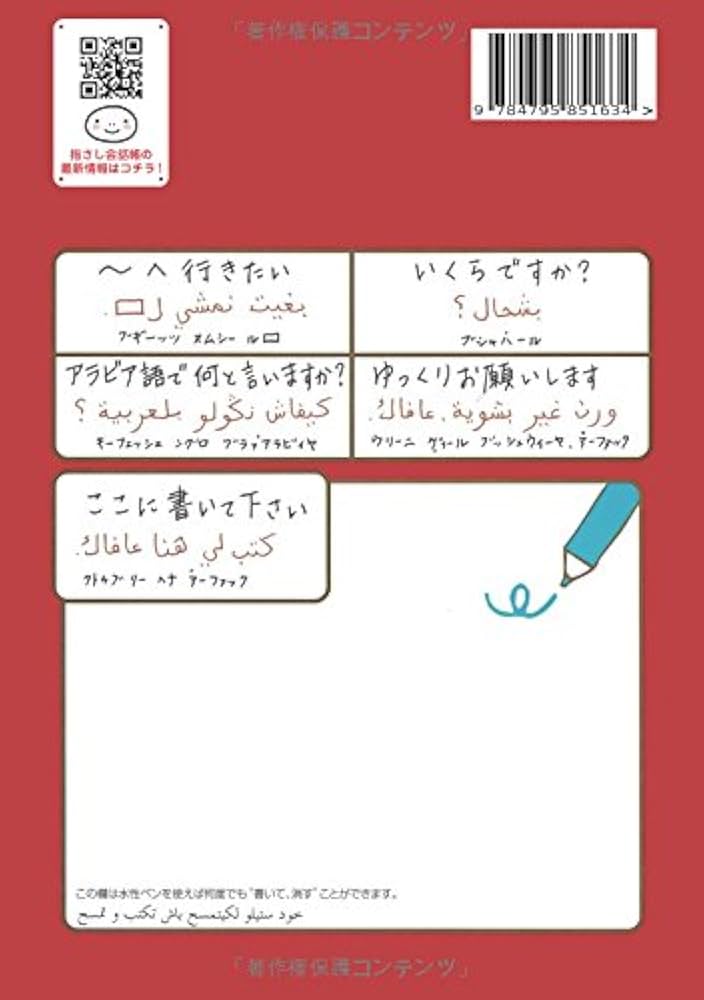 「著作権保護コンテンツ」
指さし会話帳の
最新情報はコチラ!
9 784795 851634 >
〜へ行きたい
بغيت نمشي ل□.
ブギーッツ ネムシー ル□
いくらですか?
بشحال ؟
ブシャハール
アラビア語で何と言いますか?
كيفاش نڭولو بلعربية ؟
キーフェッシュ ングロ ブラアラビイヤ
ゆっくりお願いします
غير بشوية، عافاك.
ここに書いて下さい
كتب لي هنا عافاك.
クトゥブ リー ヘナ アーファック
この欄は水性ペンを使えば何度でも"書いて、消す"ことができます。
خود ستيلو لكيتمسح باش تكتب و تمسح
「著作権保護コンテンツ」